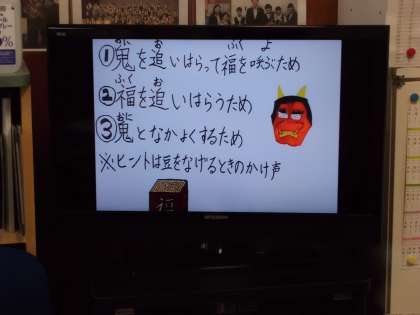 おに お ふく よ
①鬼を追いはらって福を呼ぶため
ふく お
②福を追いはらうため
おに
③鬼となかよくするため
※ヒントは豆をなげるときのかけ声
福
MITSUBISHI